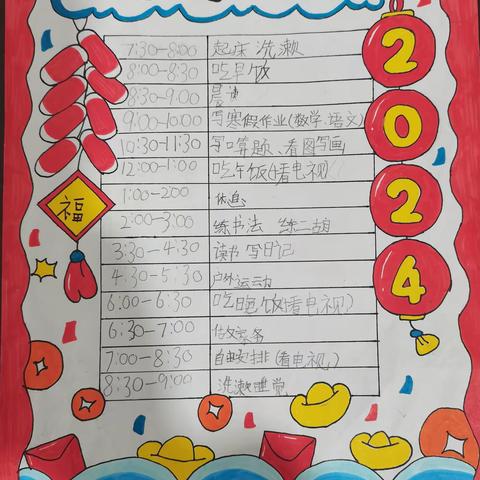 7:30-8:00 起床 洗漱
8:00-8:30 吃早饭
8:30-9:00 晨读
9:00-10:00 写寒假作业(数学.语文)
10:30-11:30 写口算题、看图写画
12:00-1:00 吃午饭(看电视)
1:00-2:00 休息
2:00-3:00 练书法 练二胡
3:30-4:30 读书 写日记
4:30-5:30 户外运动
6:00-6:30 吃晚饭(看电视)
6:30-7:00 做家务
7:00-8:30 自由安排(看电视)
8:30-9:00 洗漱睡觉
福
2
0
2
4